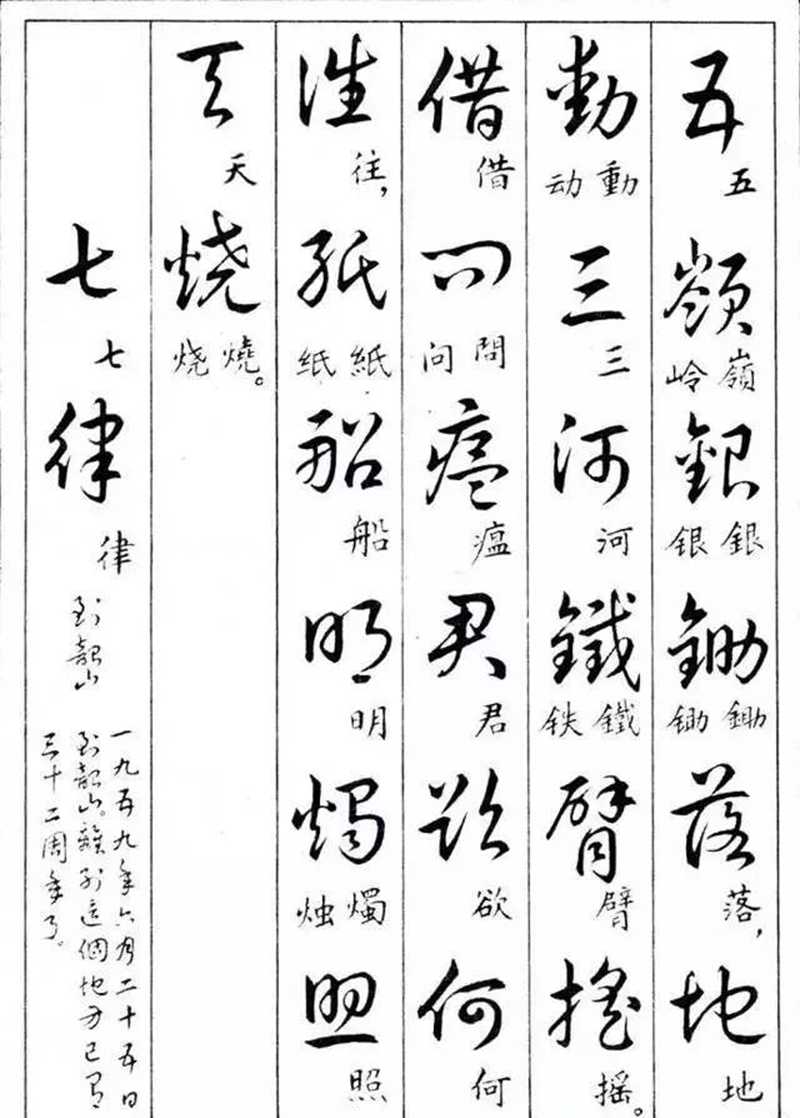 五嶺銀鋤落地
五嶺銀鋤落，地
岭银锄
動三河鐵臂摇
動三河鐵臂摇。
动铁
借問瘟君欲何
借問瘟君欲何
问
往紙船明燭照
往，紙船明燭照
纸烛
天烧
天燒。
烧
七律
七律
到韶山
一九五九年六月二十五日
到韶山。離别這個地方已有
三十二周年了。